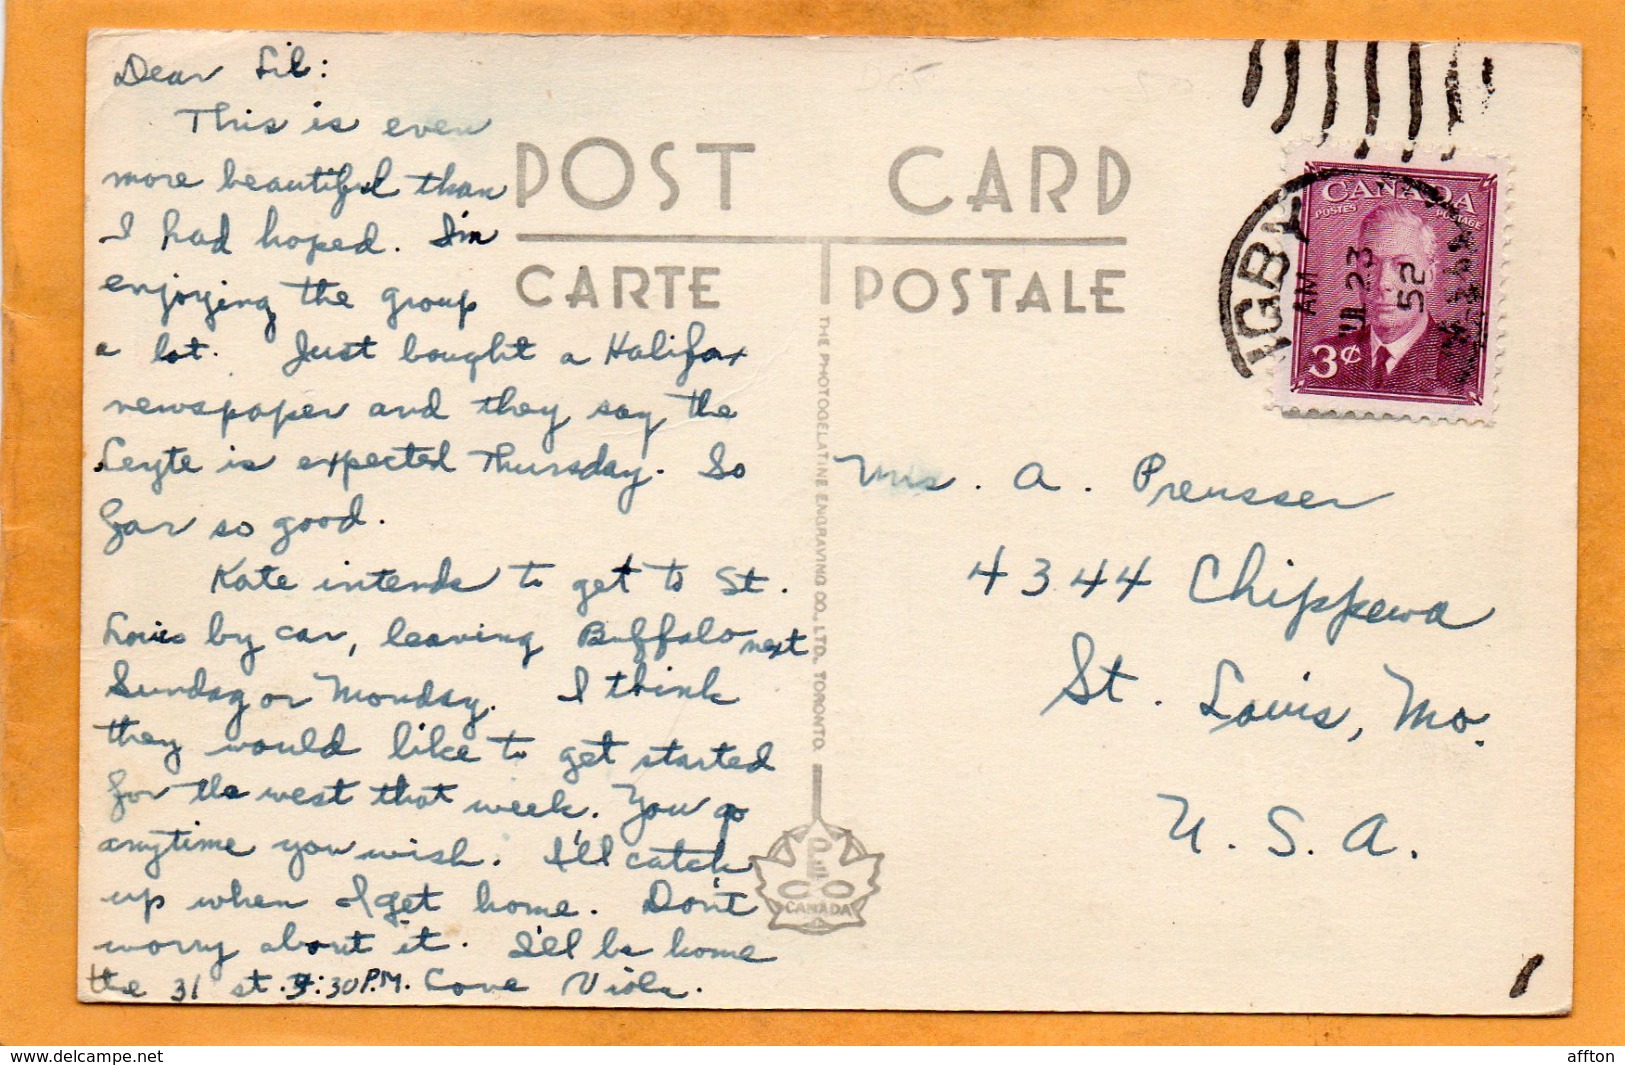 Dear Lil:
This is even
more beautiful than
I had hoped. I'm
enjoying the group
a lot. Just bought a Halifax
newspaper and they say the
Leyte is expected Thursday. So
far so good.
Kate intends to get to St.
Louis by car, leaving Buffalo next
Sunday or Monday. I think
they would like to get started
for the west that week. You go
anytime you wish. I'll catch
up when I get home. Don't
worry about it. I'll be home
the 31 st. :30 P.M. Love Viola.
POST CARD
CARTE POSTALE
THE PHOTOGELATINE ENGRAVING CO., LTD. TORONTO.
CANADA
CANADA
POSTES POSTAGE
3¢
IGBY
AM
UL 23
52
Mrs. A. Preusser
4344 Chippewa
St. Louis, Mo.
U.S.A.
www.delcampe.net
affton